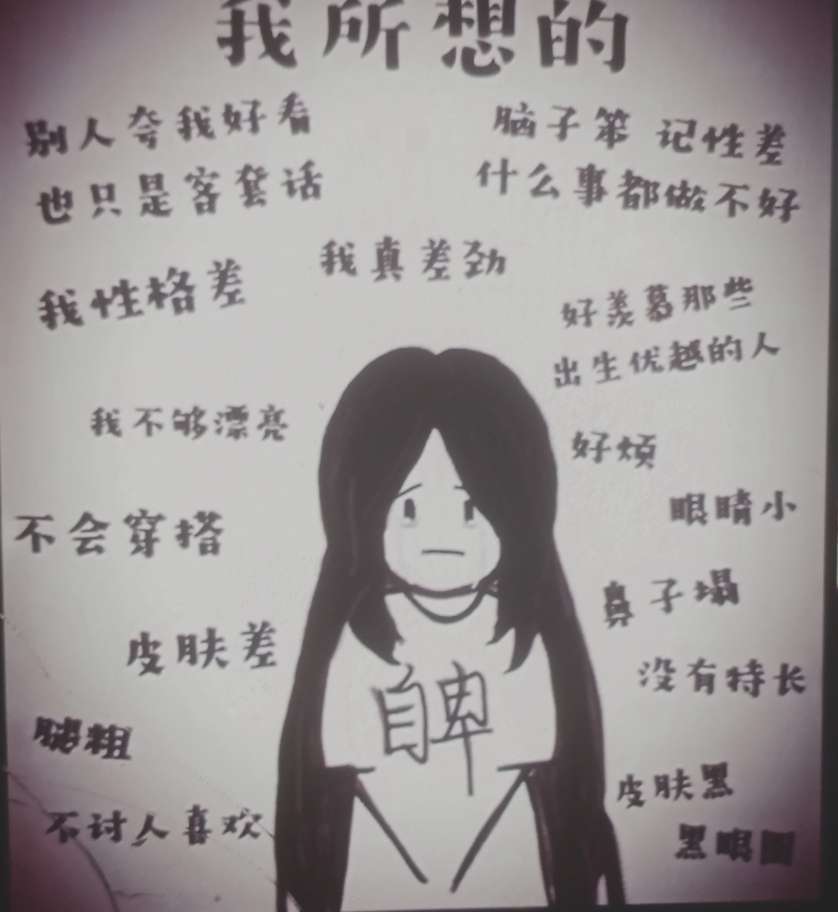 我所想的
别人夸我好看
也只是客套话
脑子笨 记性差
什么事都做不好
我真差劲
我性格差
好羡慕那些
出生优越的人
我不够漂亮
好烦
眼睛小
不会穿搭
鼻子塌
皮肤差
没有特长
自卑
腿粗
皮肤黑
不讨人喜欢
黑眼圈